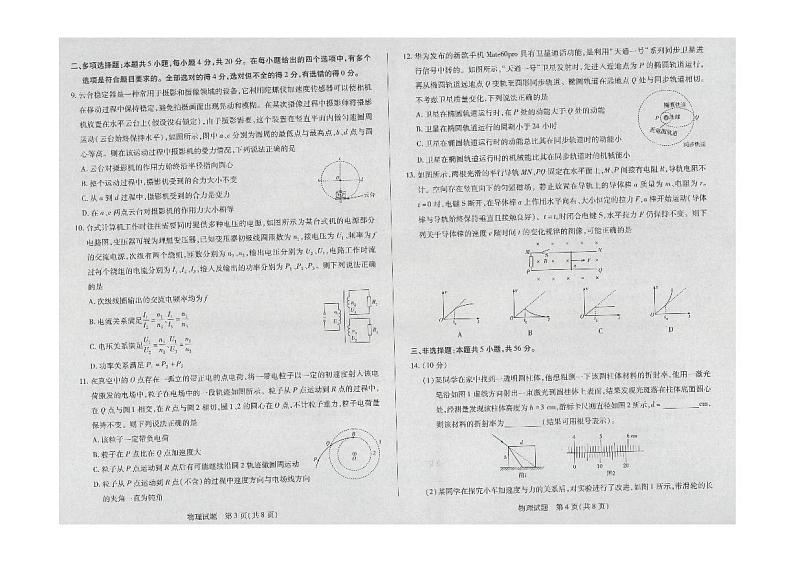 二、多项选择题:本题共5小题,每小题4分,共20分。在每小题给出的四个选项中,有多个
选项是符合题目要求的。全部选对的得4分,选对但不全的得2分,有选错的得0分。
9.云台稳定器是一种常用于摄影和摄像领域的设备,它利用陀螺仪加速度传感器可以使相机
在移动过程中保持稳定,避免拍摄画面出现晃动和模糊。在某次摄像过程中摄影师将摄影
机放置在水平云台上(假设没有锁定),由于摄影需要,这个装置在竖直平面内做匀速圆周
运动(云台始终保持水平),如图所示,图中a、c分别为圆周的最低点与最高点,b、d点与圆
心等高。则在该运动过程中摄影机的受力情况,下列说法正确的是
A.云台对摄影机的作用力始终沿半径指向圆心
B.整个运动过程中,摄影机受到的合力大小不变
C.从a到d过程中,摄影机受到的合力是变力
D.在a、c两点云台对摄影机的作用力大小相等
云台
10.台式计算机工作时往往需要同时提供多种电压的电源,如图所示为某台式机的电源部分
电路图,变压器可视为理想变压器,已知变压器初级线圈匝数为n₁,接电压为U₁、频率为f
的交流电源,次级有两个绕组,匝数分别为n₂、n₃,输出电压分别为U₂、U₃,电路工作时流
过每个绕组的电流分别为I₁、I₂、I₃,输入及输出的功率分别为P₁、P₂、P₃。则下列说法正确
的是
A.次级线圈输出的交流电频率均为f
C.电压关系满足
D.功率关系满足P₁=P₂+P₃
11.在真空中的O点存在一孤立的带正电的点电荷,将一带电粒子以一定的初速度射入该电
荷激发的电场中,粒子在电场中的一段轨迹如图所示。粒子从P点运动到R点的过程中,
在Q点与圆1相交,在R点与圆2相切,圆1、2的圆心在O点,不计粒子重力,粒子电荷量
保持不变。则下列说法正确的是
A.该粒子一定带负电荷
B.粒子在P点比在Q点加速度大
C.粒子从P点运动到R点后有可能继续沿圆2轨迹做圆周运动
D.粒子从P点运动到R点(不含)的过程中速度方向与电场线方向
的夹角一直为钝角
物理试题 第3页(共8页)
12.华为发布的新款手机Mate60pro具有卫星通话功能,是利用“天通一号”系列同步卫星进
行信号中转的。如图所示,“天通一号”卫星发射时,先进入近地点为P的椭圆轨道运行,
再从椭圆轨道远地点Q变轨至圆形同步轨道、椭圆轨道在远地点Q处与同步轨道相切。
不考虑卫星质量变化,下列说法正确的是
A.卫星在椭圆轨道运行时,在P处的动能大于Q处的动能
B.卫星在椭圆轨道运行的周期小于24小时
C.卫星在椭圆轨道运行时的动能总比其在同步轨道时的动能小
D.卫星在椭圆轨道运行时的机械能比其在同步轨道时的机械能小
椭圆轨道
P
Q
地球
近地圆轨道
同步轨道
13.如图所示,两根光滑的平行导轨MN、PQ固定在水平面上,M、P间接有电阻R,导轨电阻不
计。空间存在竖直向下的匀强磁场。若止放置在导轨上的导体棒a质量为m、电阻为r。
t=0时,电键S断开,在导体棒上作用水平向右、大小恒定的拉力F,棒a开始运动(导体
棒与导轨始终保持垂直且接触良好)。t=t₀时闭合电键S,水平拉力F仍保持不变。则下
列关于导体棒的速度v随时间t的变化规律的图像,可能正确的是
A B C D
三、非选择题:本题共5小题,共56分。
14.(10分)
(1)某同学在家中找到一透明圆柱体,他想粗测一下该圆柱体材料的折射率。他用一激光
笔沿如图1虚线方向射出一束激光到圆柱体上表面,结果发现光斑落在柱体底面圆心
处,经测量发现该柱体高度为h=3 cm,游标卡尺测直径如图2所示,d=________cm,
则该材料的折射率为________(结果可用根号表示)。
图1
4 5 6 cm
0 10 20
图2
(2)某同学在探究小车加速度与力的关系后,对实验进行了改进,如图1所示,带滑轮的长
物理试题 第4页(共8页)